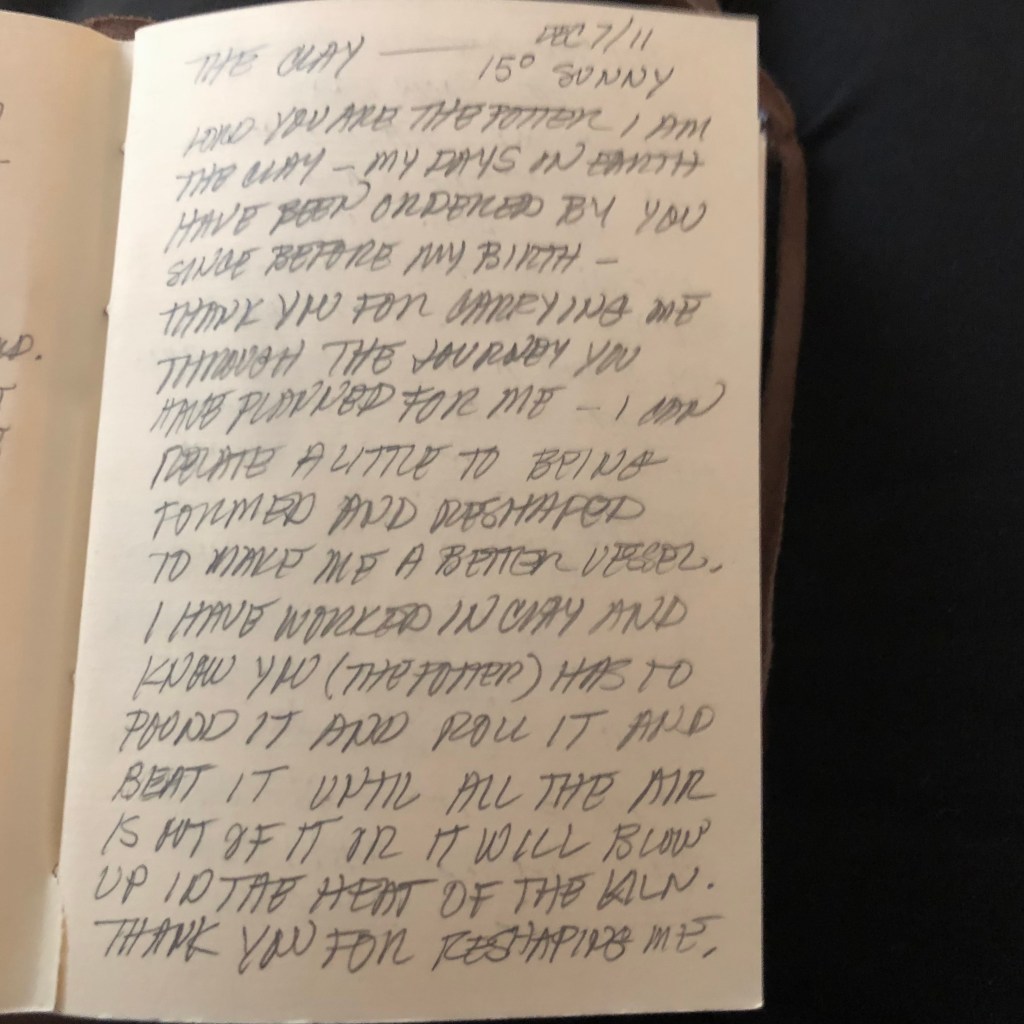 THE CLAY — DEC 7/11
15° SUNNY
LORD YOU ARE THE POTTER I AM
THE CLAY - MY DAYS IN EARTH
HAVE BEEN ORDERED BY YOU
SINCE BEFORE MY BIRTH -
THANK YOU FOR CARRYING ME
THROUGH THE JOURNEY YOU
HAVE PLANNED FOR ME - I CAN
RELATE A LITTLE TO BEING
FORMED AND RESHAPED
TO MAKE ME A BETTER VESSEL.
I HAVE WORKED IN CLAY AND
KNOW YOU (THE POTTER) HAS TO
POUND IT AND ROLL IT AND
BEAT IT UNTIL ALL THE AIR
IS OUT OF IT OR IT WILL BLOW
UP IN THE HEAT OF THE KILN.
THANK YOU FOR RESHAPING ME.
D.